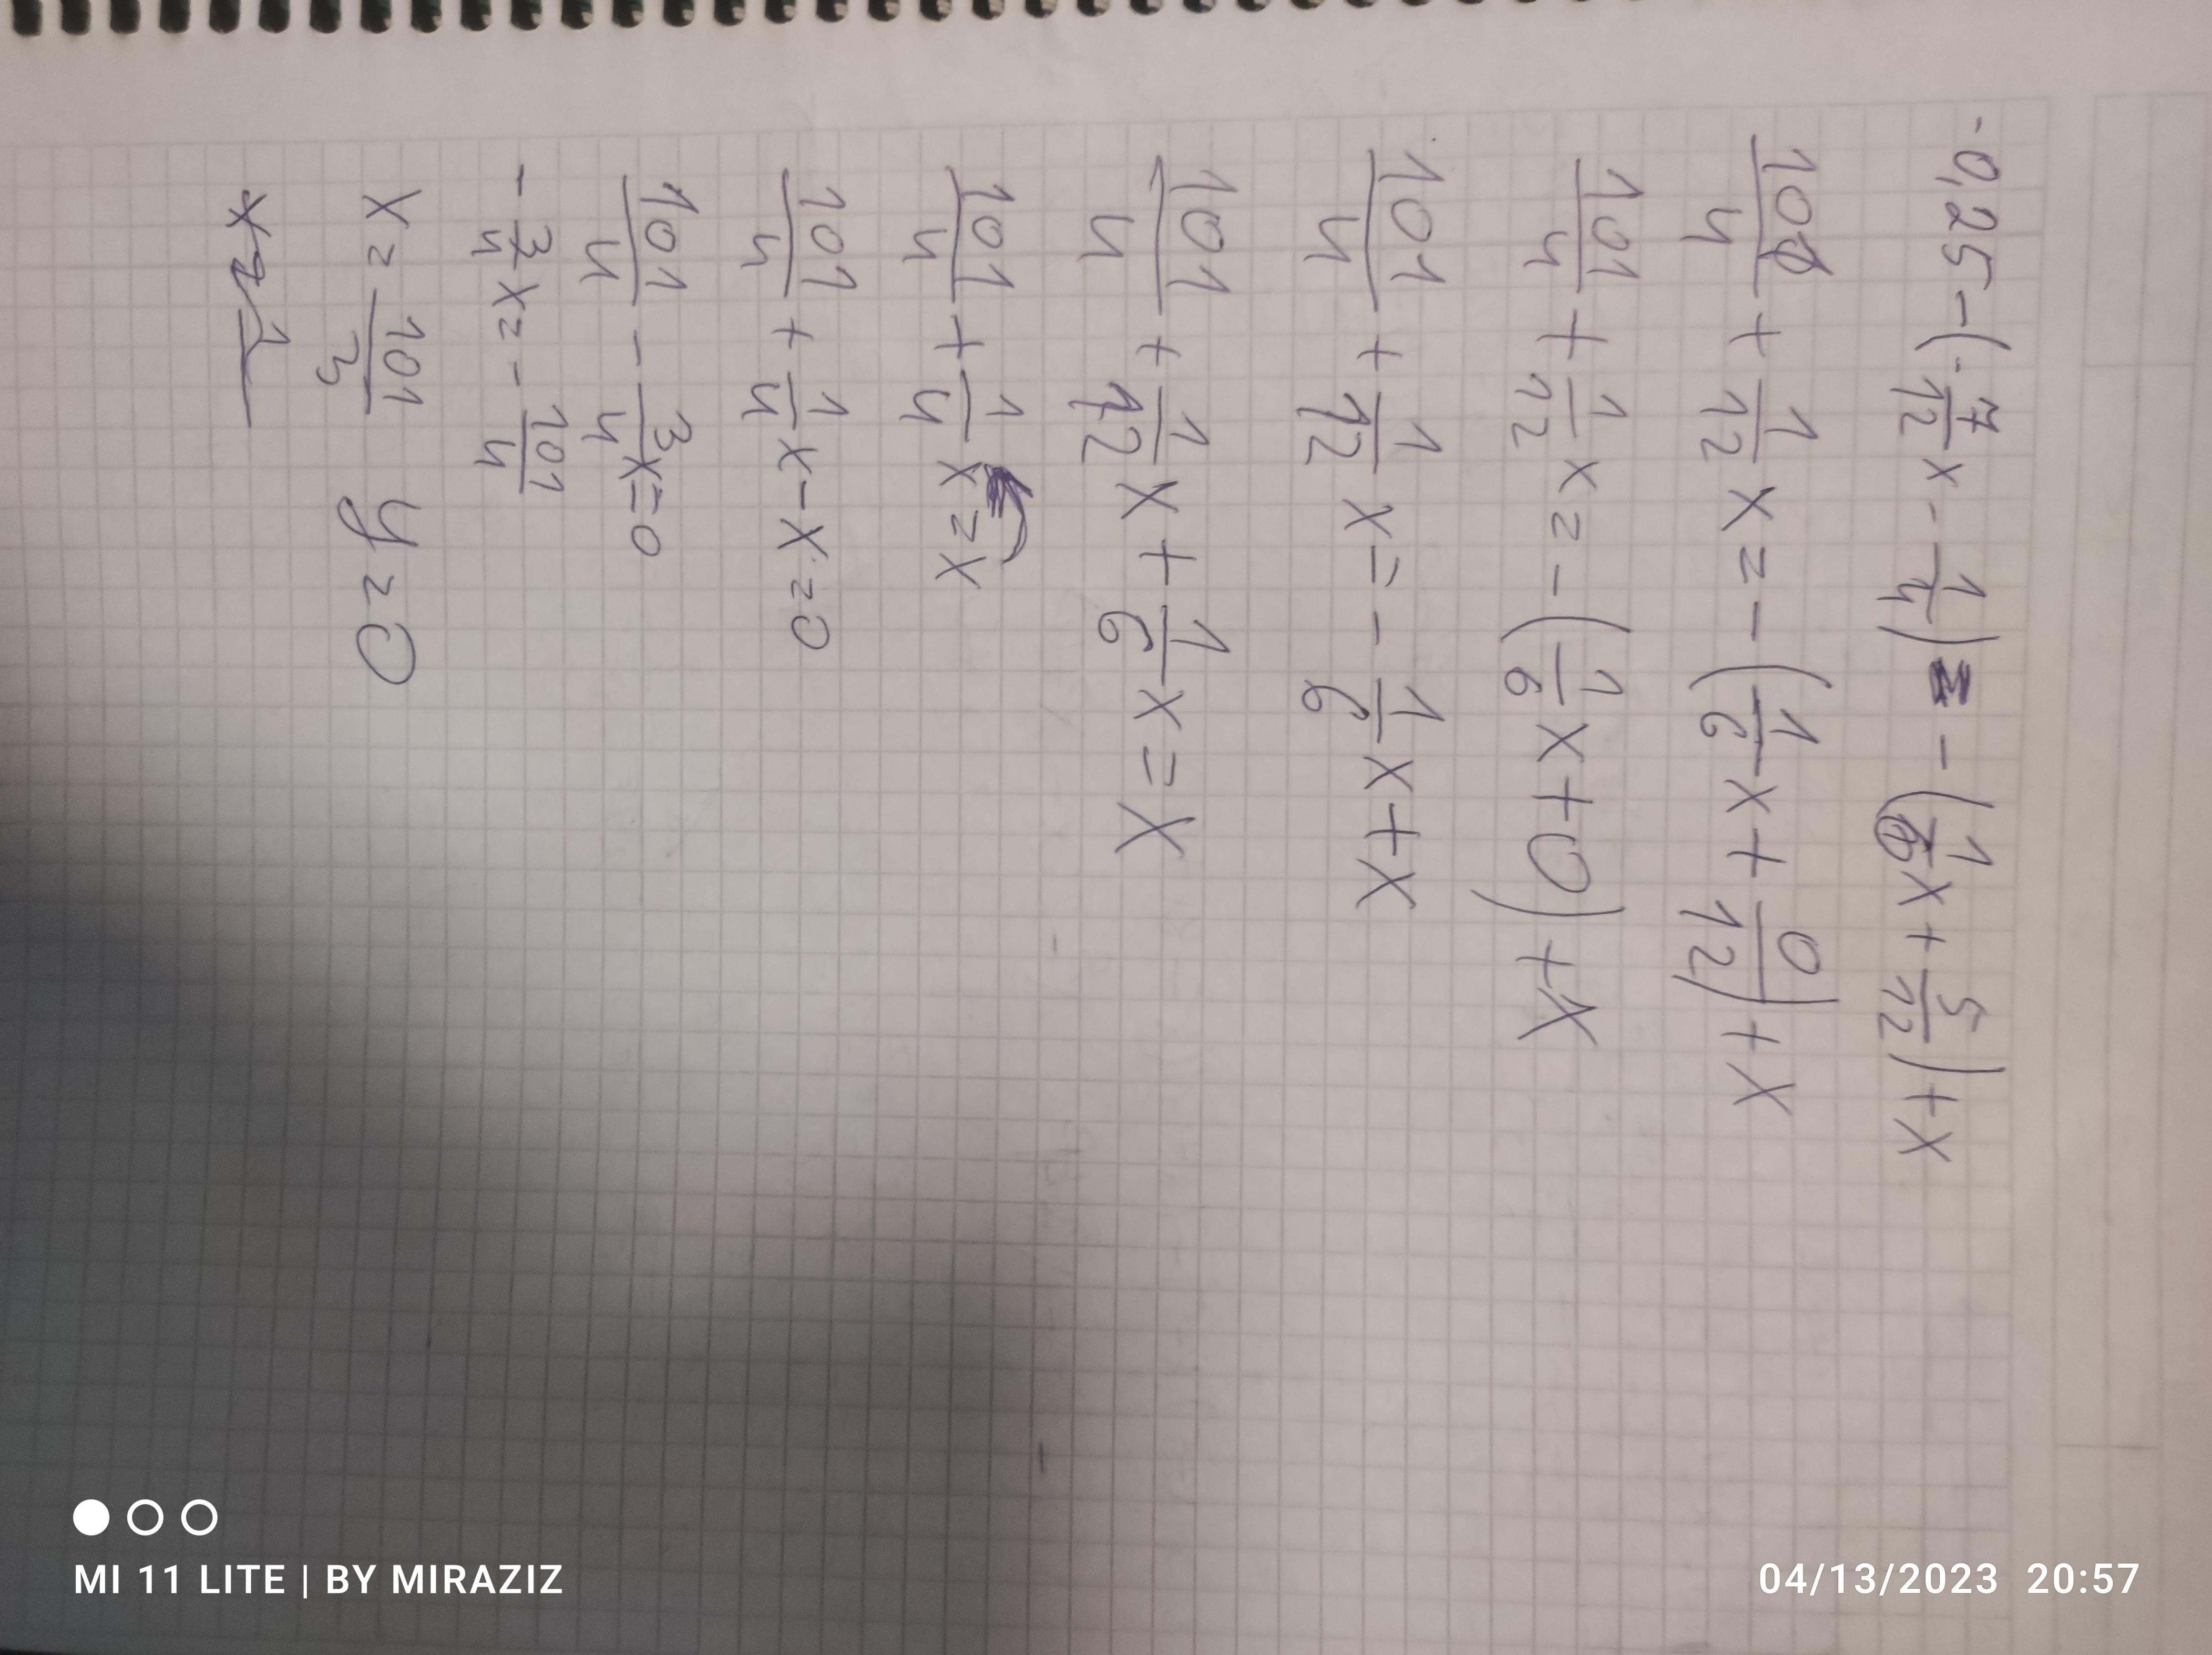 -0,25-(-7/12x--1/4)=-(1/6x+5/12)+x
101/4+1/12x=-(1/6x+0/12)+x
101/4+1/12x=-(1/6x+0)+x
101/4+1/12x=-1/6x+x
101/4+1/12x+1/6x=x
101/4+1/4x=x
101/4+1/4x-x=0
101/4-3/4x=0
-3/4x=-101/4
x=101/3 y=0
MI 11 LITE | BY MIRAZIZ
04/13/2023 20:57